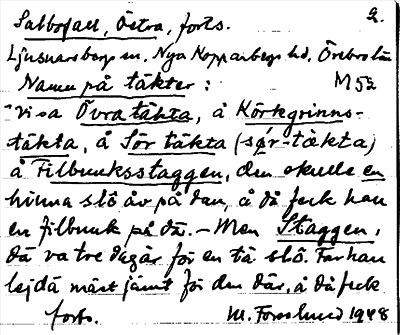 Salbosjatt, Östra, forts. 2.
Ljusnarsbergs sn. Nya Kopparbergs hd. Örebro län
Namn på täkter: M52
"Vi sa Övratäkta, å Körkgrinns-
täkta, å Sör täkta (sør-tækta)
å Filbunksstaggen, den skulle en
hinna slå åv på dan, å då feck han
en filbunk på dä. – Men Staggen,
dä va tre dagar för en tå slô. Far han
lejdä mäst jämt för den där, å då feck
forts. M. Forslund 1948